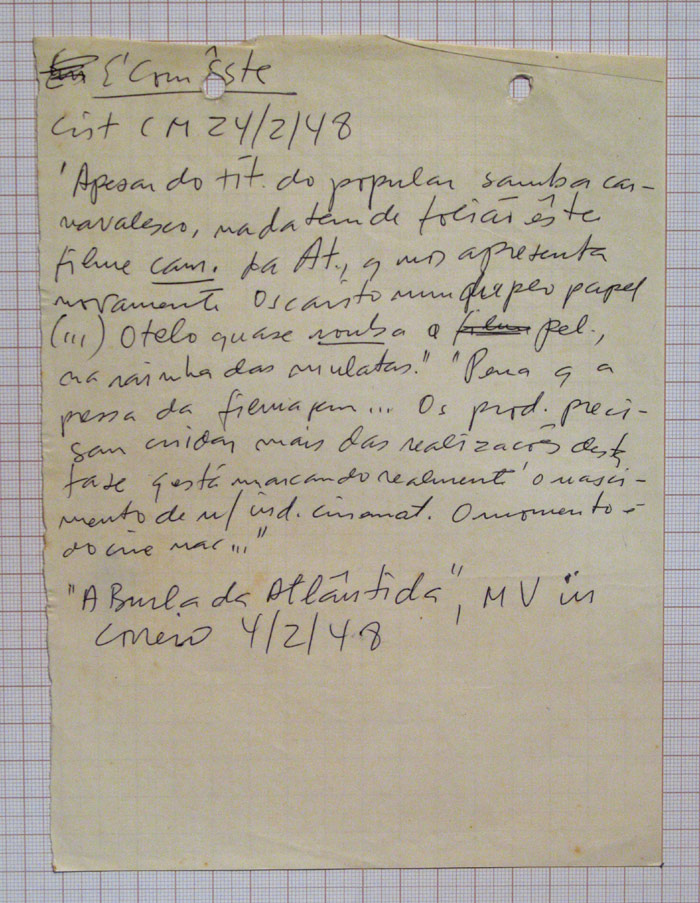 É Com Êste
Cist CM 24/2/48
'Apesar do tít. do popular samba car-
navalesco, nada tem de folião êste
filme carn. da At., q nos apresenta
novamente Oscarito num duplo papel
(...) Otelo quase rouba o pel.,
na rainha das mulatas." "Pena q a
pressa da filmagem... Os prod. preci-
sam cuidar mais das realizações desta
fase q está marcando realmente o nasci-
mento de n/ ind. cinemat. O momento é
do cine nac..."
"A Burla da Atlântida", MV in
Correio 4/2/48